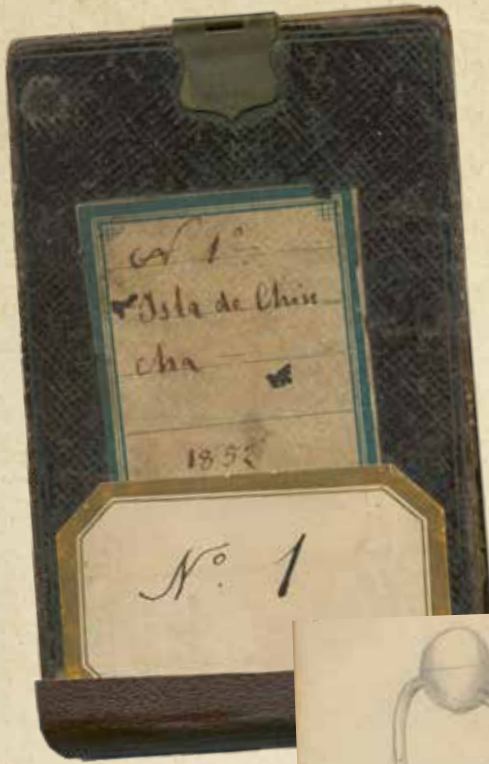 N 1º
Isla de Chin
cha
1852
Nº. 1